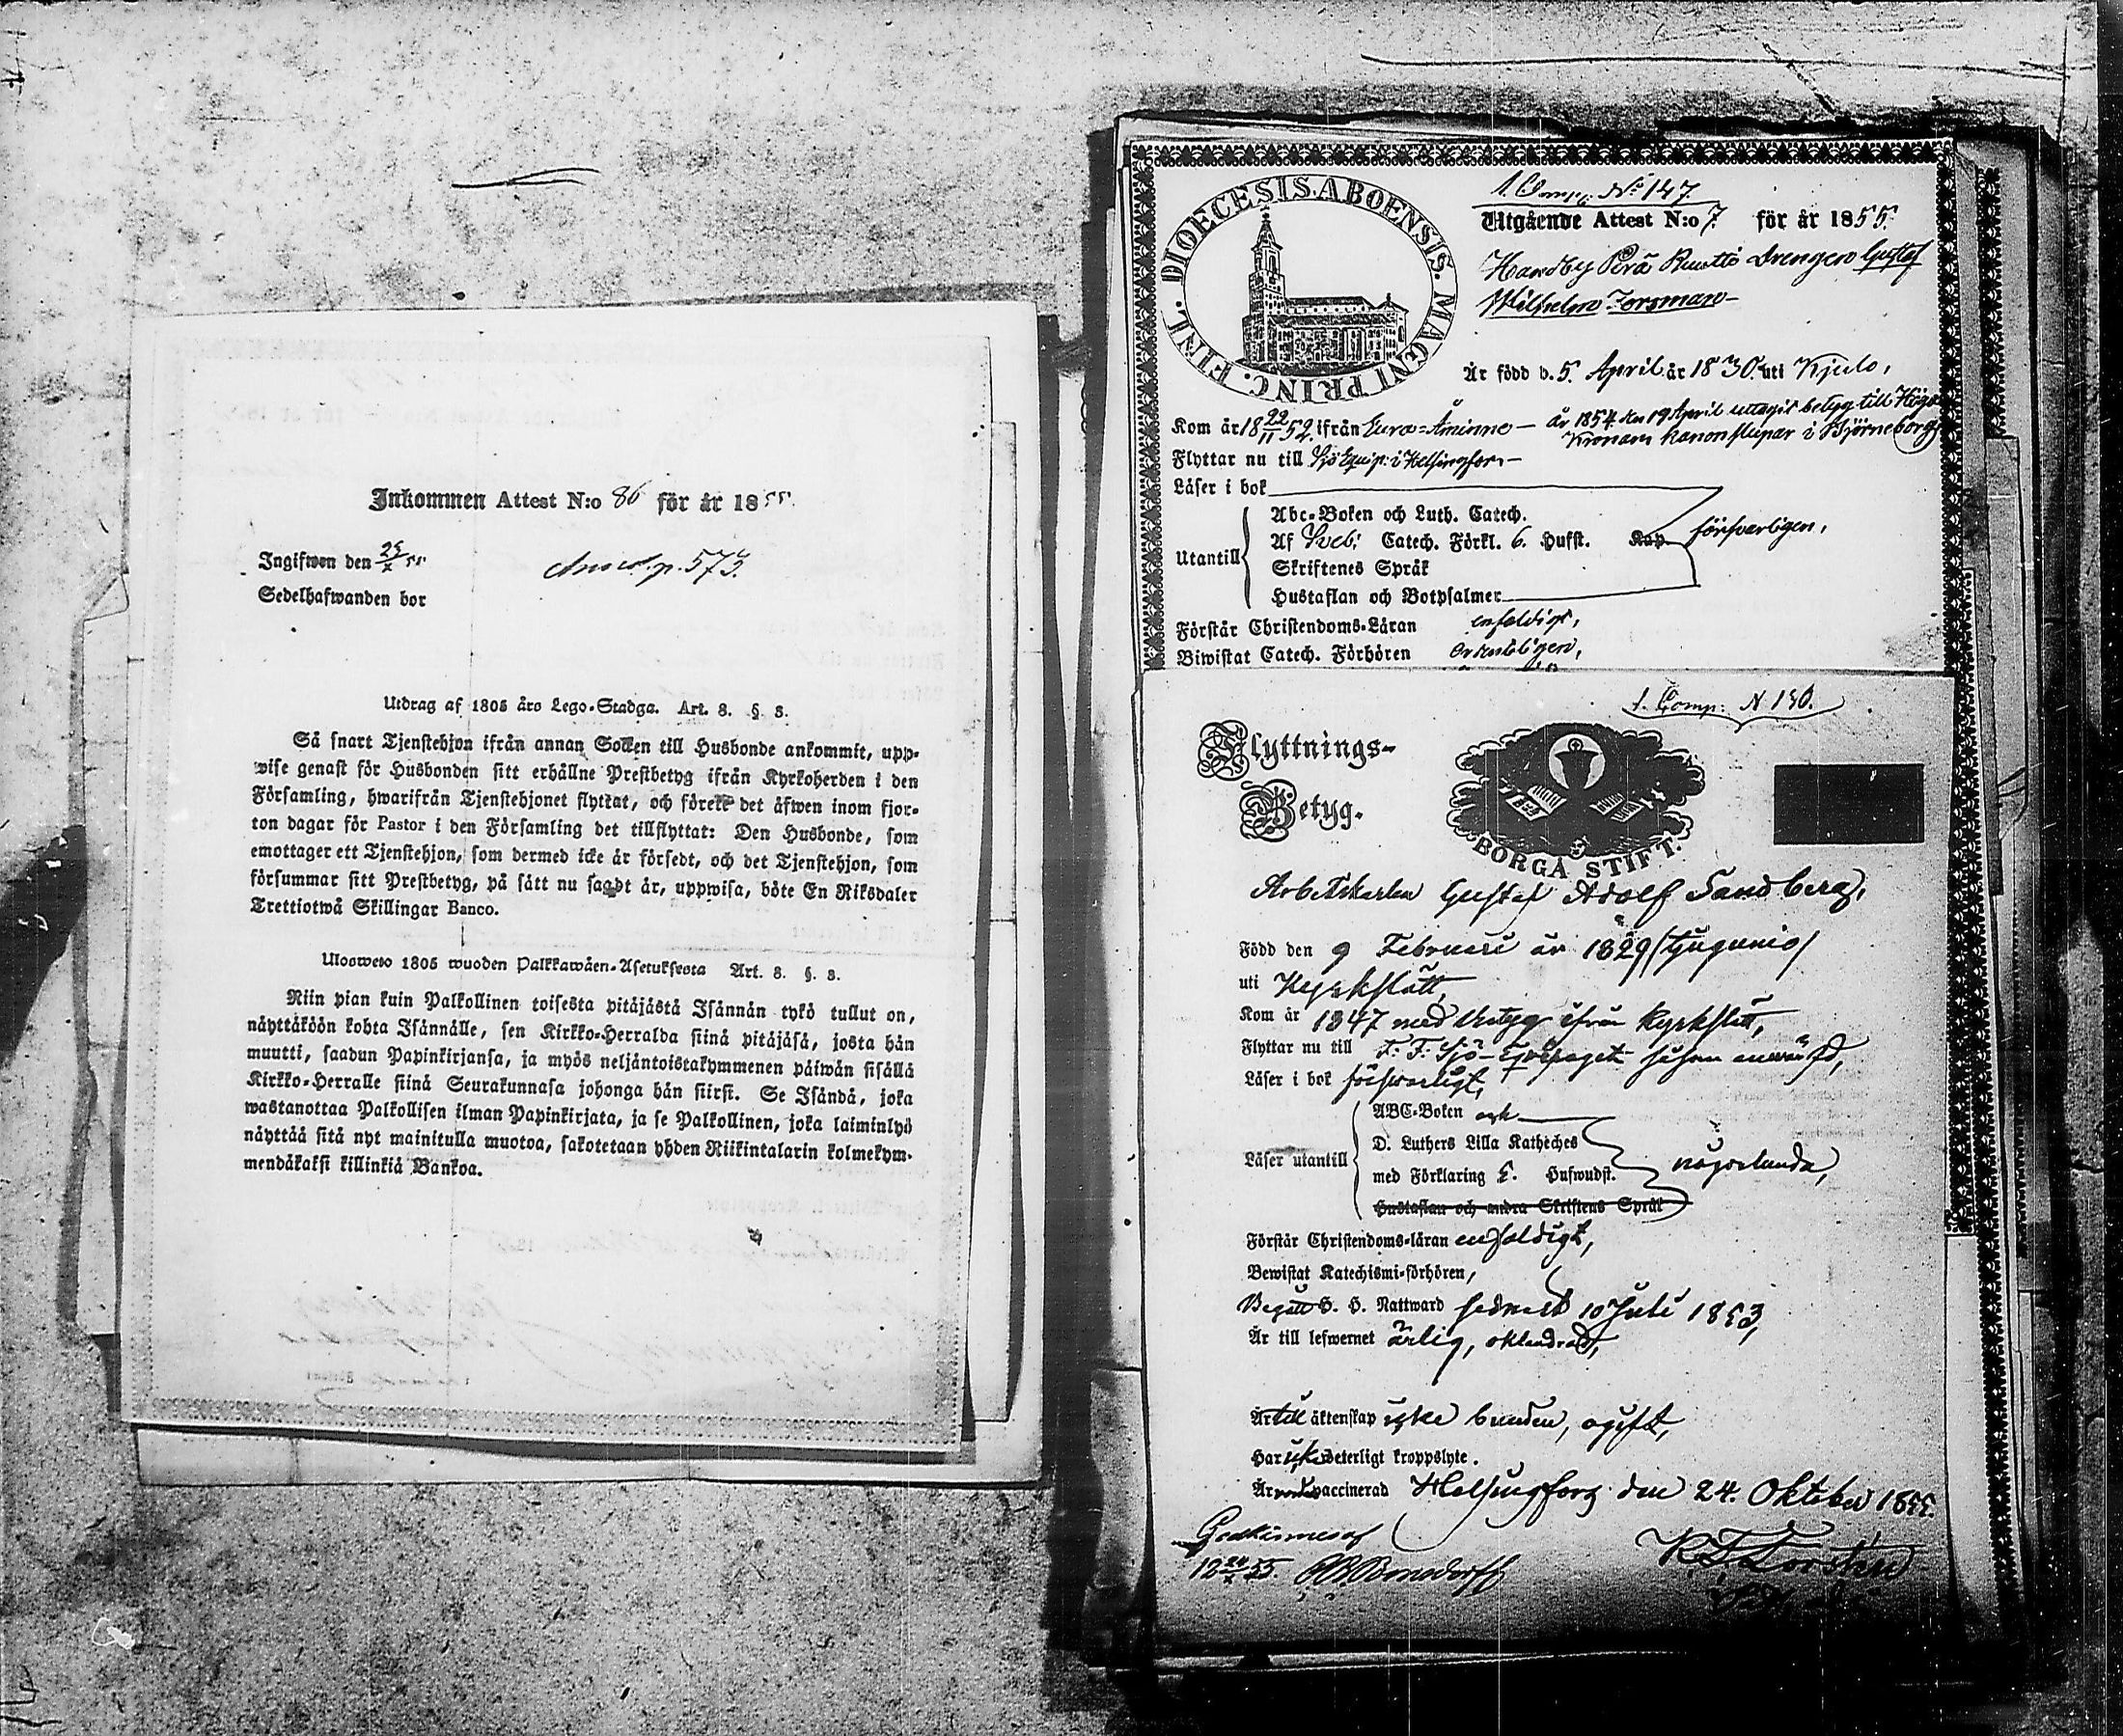 Inkommen Attest N:o 86 för år 1855.
Ingifwen den 25/x 55
p. 573.
Sedelhafwanden bor
Utdrag af 1805 års Lego-Stadga. Art. 8. §. 3.
Så snart Tjenstehjon ifrån annan Socken till Husbonde ankommit, upp-
wise genast för Husbonden sitt erhållne Prestbetyg ifrån Kyrkoherden i den
Församling, hwarifrån Tjenstehjonet flyttat, och förete det äfwen inom fjor-
ton dagar för Pastor i den Församling det tillflyttat: Den Husbonde, som
emottager ett Tjenstehjon, som dermed icke är försedt, och det Tjenstehjon, som
försummar sitt Prestbetyg, på sätt nu sagdt är, uppwisa, böte En Riksdaler
Trettiotwå Skillingar Banco.
Ulosweto 1805 wuoden Palkkawäen-Asetuksesta Art. 8. §. 3.
Niin pian kuin Palkollinen toisesta pitäjästä Isännän tykö tullut on,
näyttäköön kohta Isännälle, sen Kirkko-Herralda siinä pitäjäsä, josta hän
muutti, saadun Papinkirjansa, ja myös neljäntoistakymmenen päiwän sisällä
Kirkko-Herralle siinä Seurakunnasa johonga hän siirsi. Se Isändä, joka
wastanottaa Palkollisen ilman Papinkirjata, ja se Palkollinen, joka laiminlyö
näyttää sitä nyt mainitulla muotoa, sakotetaan yhden Riikintalarin kolmekym-
mendäkaksi killinkiä Bankoa.
DIOECESIS ABOENSIS. MAGNI PRINC. FINL.
1 Comp. No 147.
Utgående Attest N:o 7. för år 1855.
Drengen Gustaf
Wilhelm Forsman
Är född d. 5. April år 1830. uti Kjulo,
Kom år 18 22/11 52. ifrån Eura-Åminne – år 1854 den 19 April uttagit betyg till Höga
Kronans kanonslupar i Björneborg,
Flyttar nu till Sjö Equip: i Helsingfors
Läser i bok
Utantill
Abc-Boken och Luth. Catech.
Af Sveb: Catech. Förkl. 6. Hufst. Kap försvarligen,
Skriftenes Språk
Hustaflan och Botpsalmer
Förstår Christendoms-Läran enfaldigt,
Biwistat Catech. Förhören ordentligen,
1. Comp: N 150.
Flyttnings-
Betyg.
BORGÅ STIFT.
Arbetskarlen Gustaf Adolf Sandberg,
Född den 9 Februari år 1829 /tjugunio/
uti Kyrkslätt,
Kom år 1847 med betyg ifrån Kyrkslätt,
Flyttar nu till F. F. Sjö-Equipaget såsom anwärfd,
Läser i bok försvarligt,
Läser utantill
ABC-Boken och
D. Luthers Lilla Katheches
med Förklaring 5. Hufwudst. någorlunda,
Hustaflan och andra Skriftens Språk
Förstår Christendoms-läran enfaldigt,
Bewistat Katechismi-förhören,
Begått H. H. Nattward sednast 10 Juli 1853,
Är till lefwernet ärlig, oklandrad,
Är till äktenskap icke bunden, ogift,
Har icke weterligt kroppslyte.
Är vaccinerad Helsingfors den 24. Oktober 1855.
Godkännes af
12 24/x 55. Bonsdorff